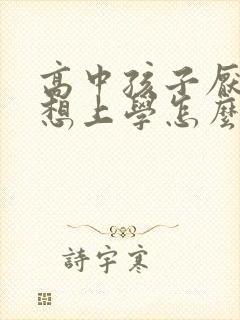 高中孩子厭
想上學怎麼
詩宇寒